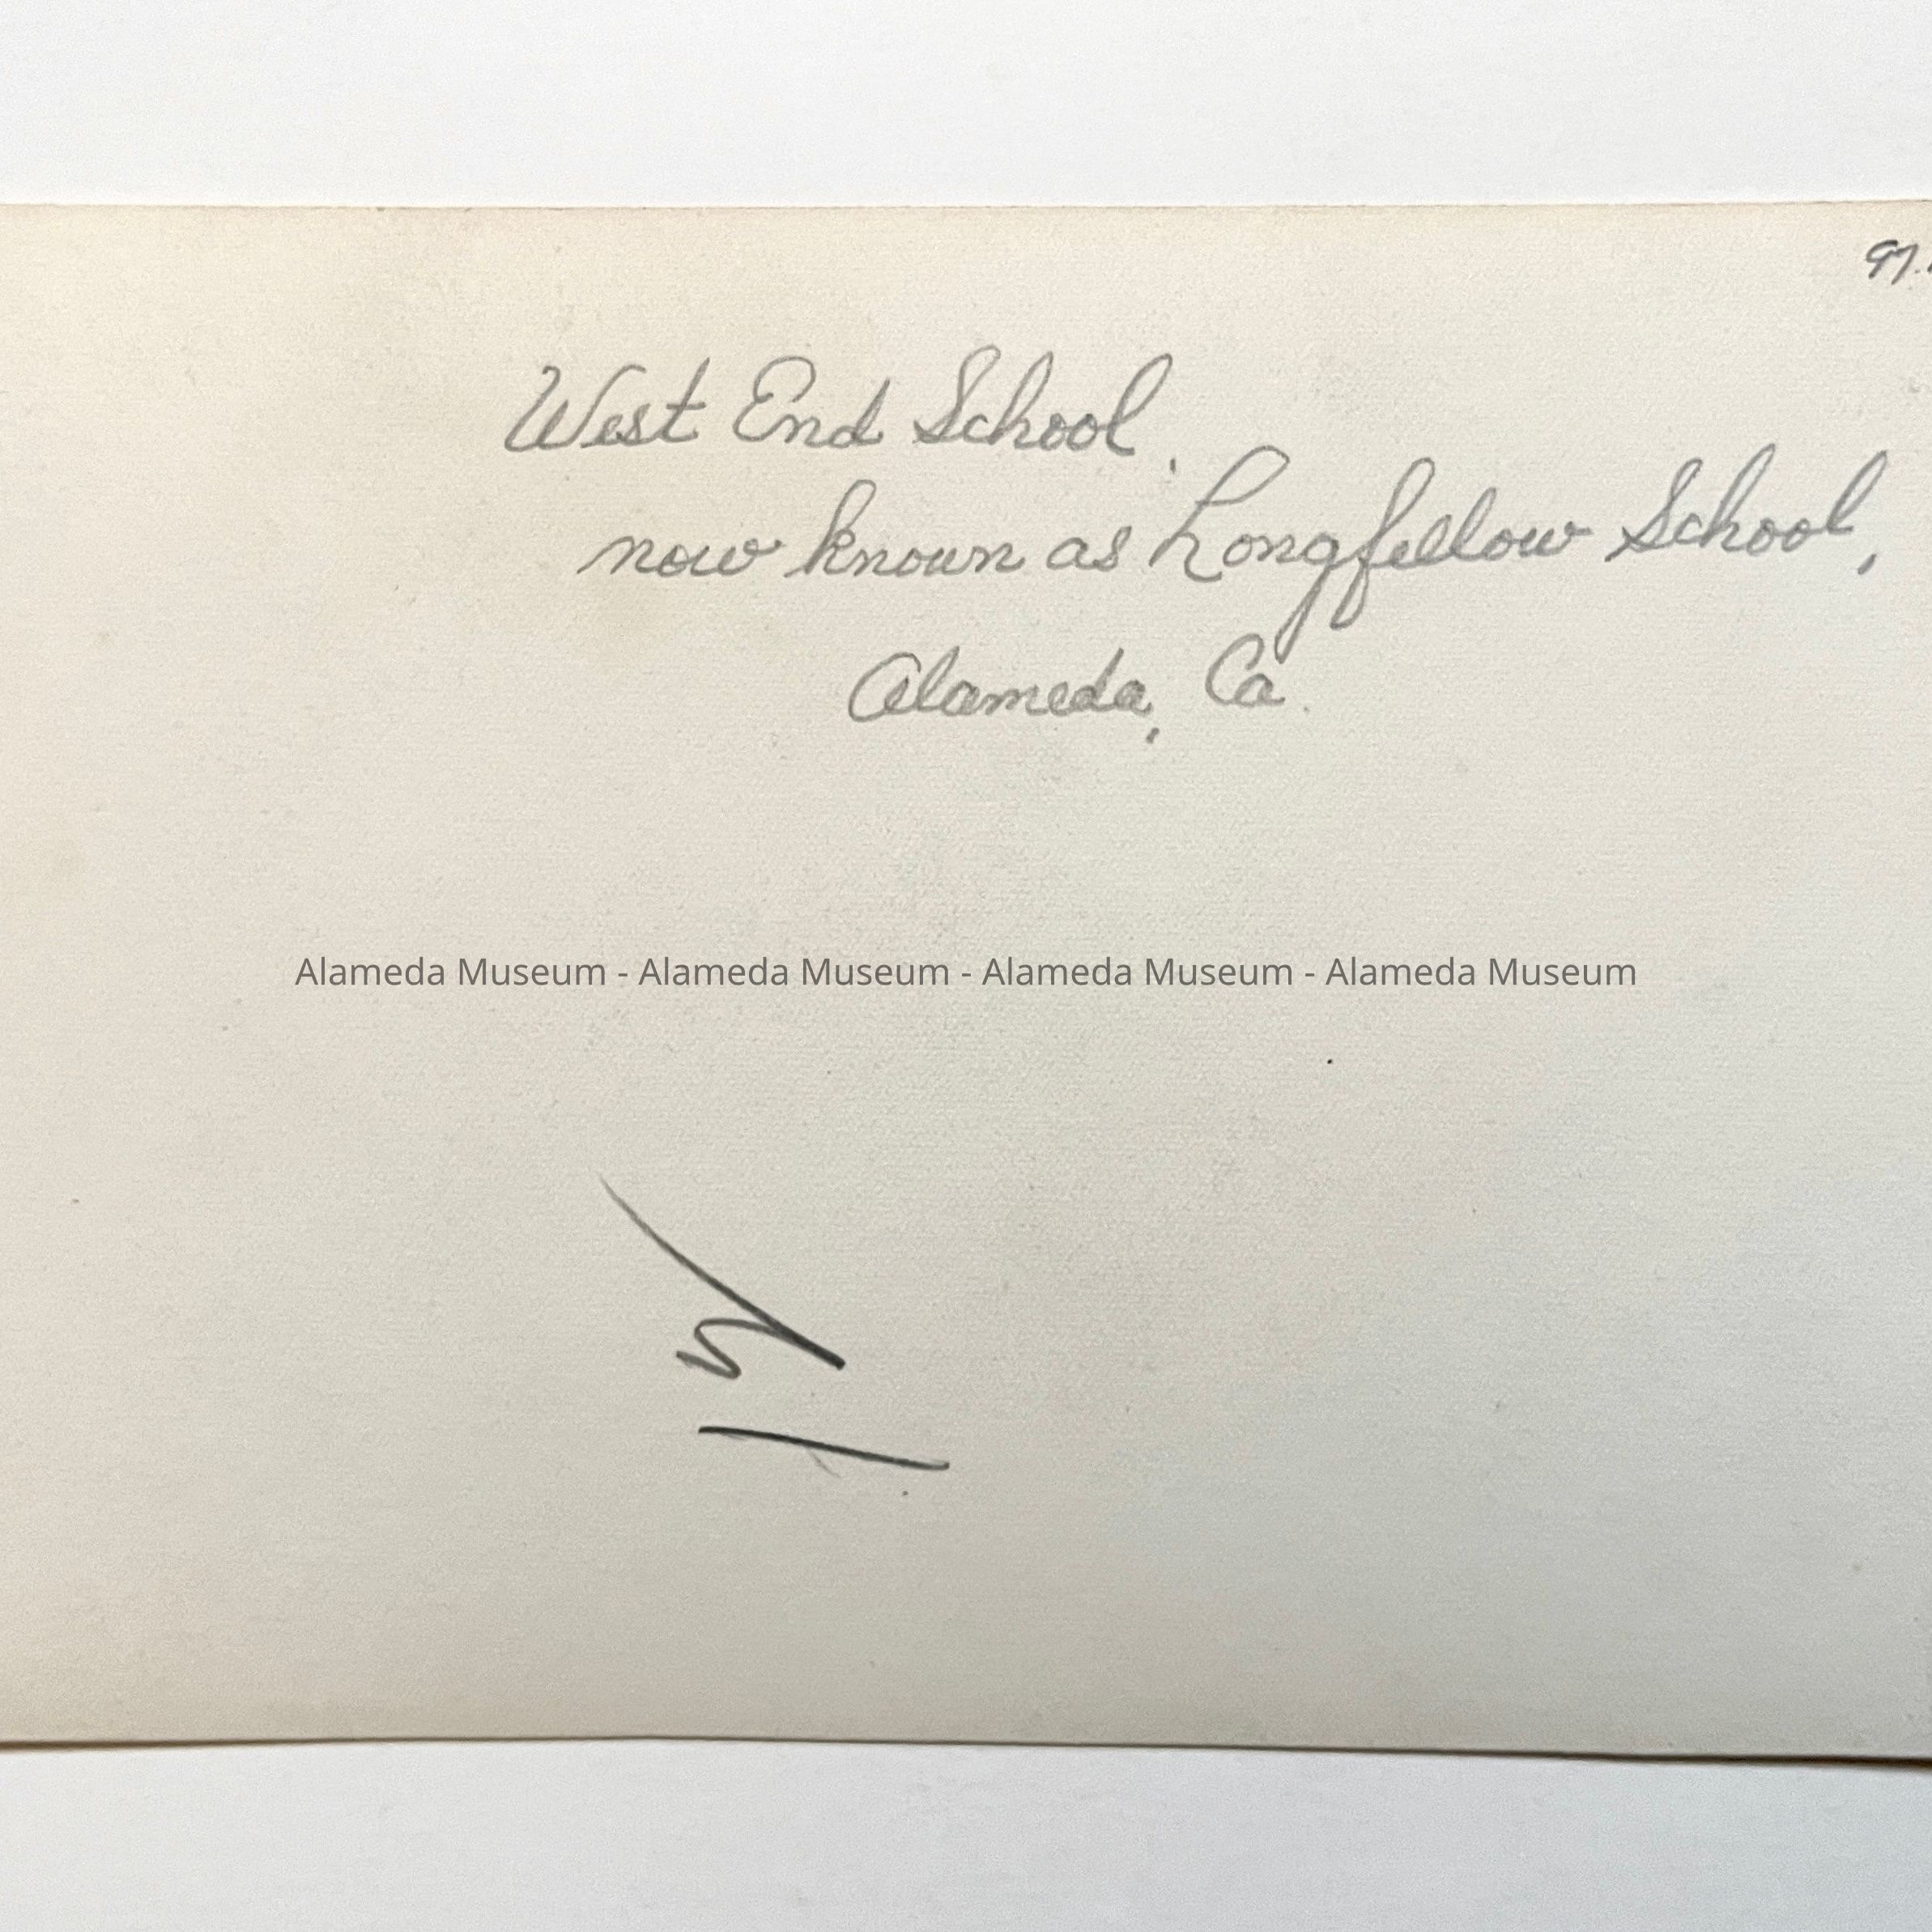 97.
West End School,
now known as Longfellow School,
Alameda, Ca.
Alameda Museum - Alameda Museum - Alameda Museum - Alameda Museum